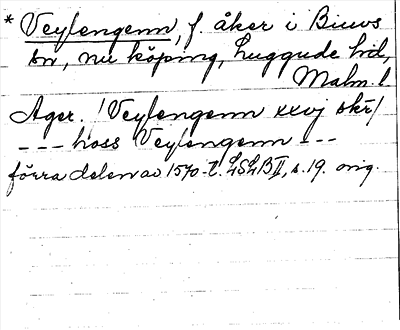 * Veylengenn, f. åker i Biuvs
sn, nu köping, Luggude hd,
Malm. l
Ager. /Veylengenn xxvj skr/
--- hoss Veylengenn ---
förra delen av 1570-t. LSLB II, s. 19. orig.